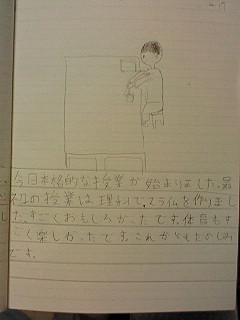 今日本格的な授業が始まりました。最
初の授業は理科で、スライムを作りまし
た。すごくおもしろかったです。体育もす
ごく楽しかったです。これからもたのしみ
です。